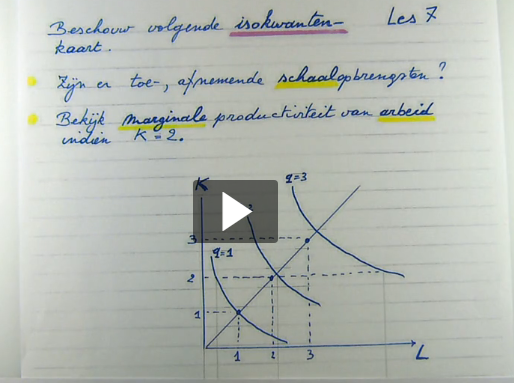 Beschouw volgende isokwanten- Les 7
kaart.
Zijn er toe-, afnemende schaalopbrengsten?
Bekijk marginale productiviteit van arbeid
indien K = 2.
K
q=3
q=1
3
2
1
1 2 3
L